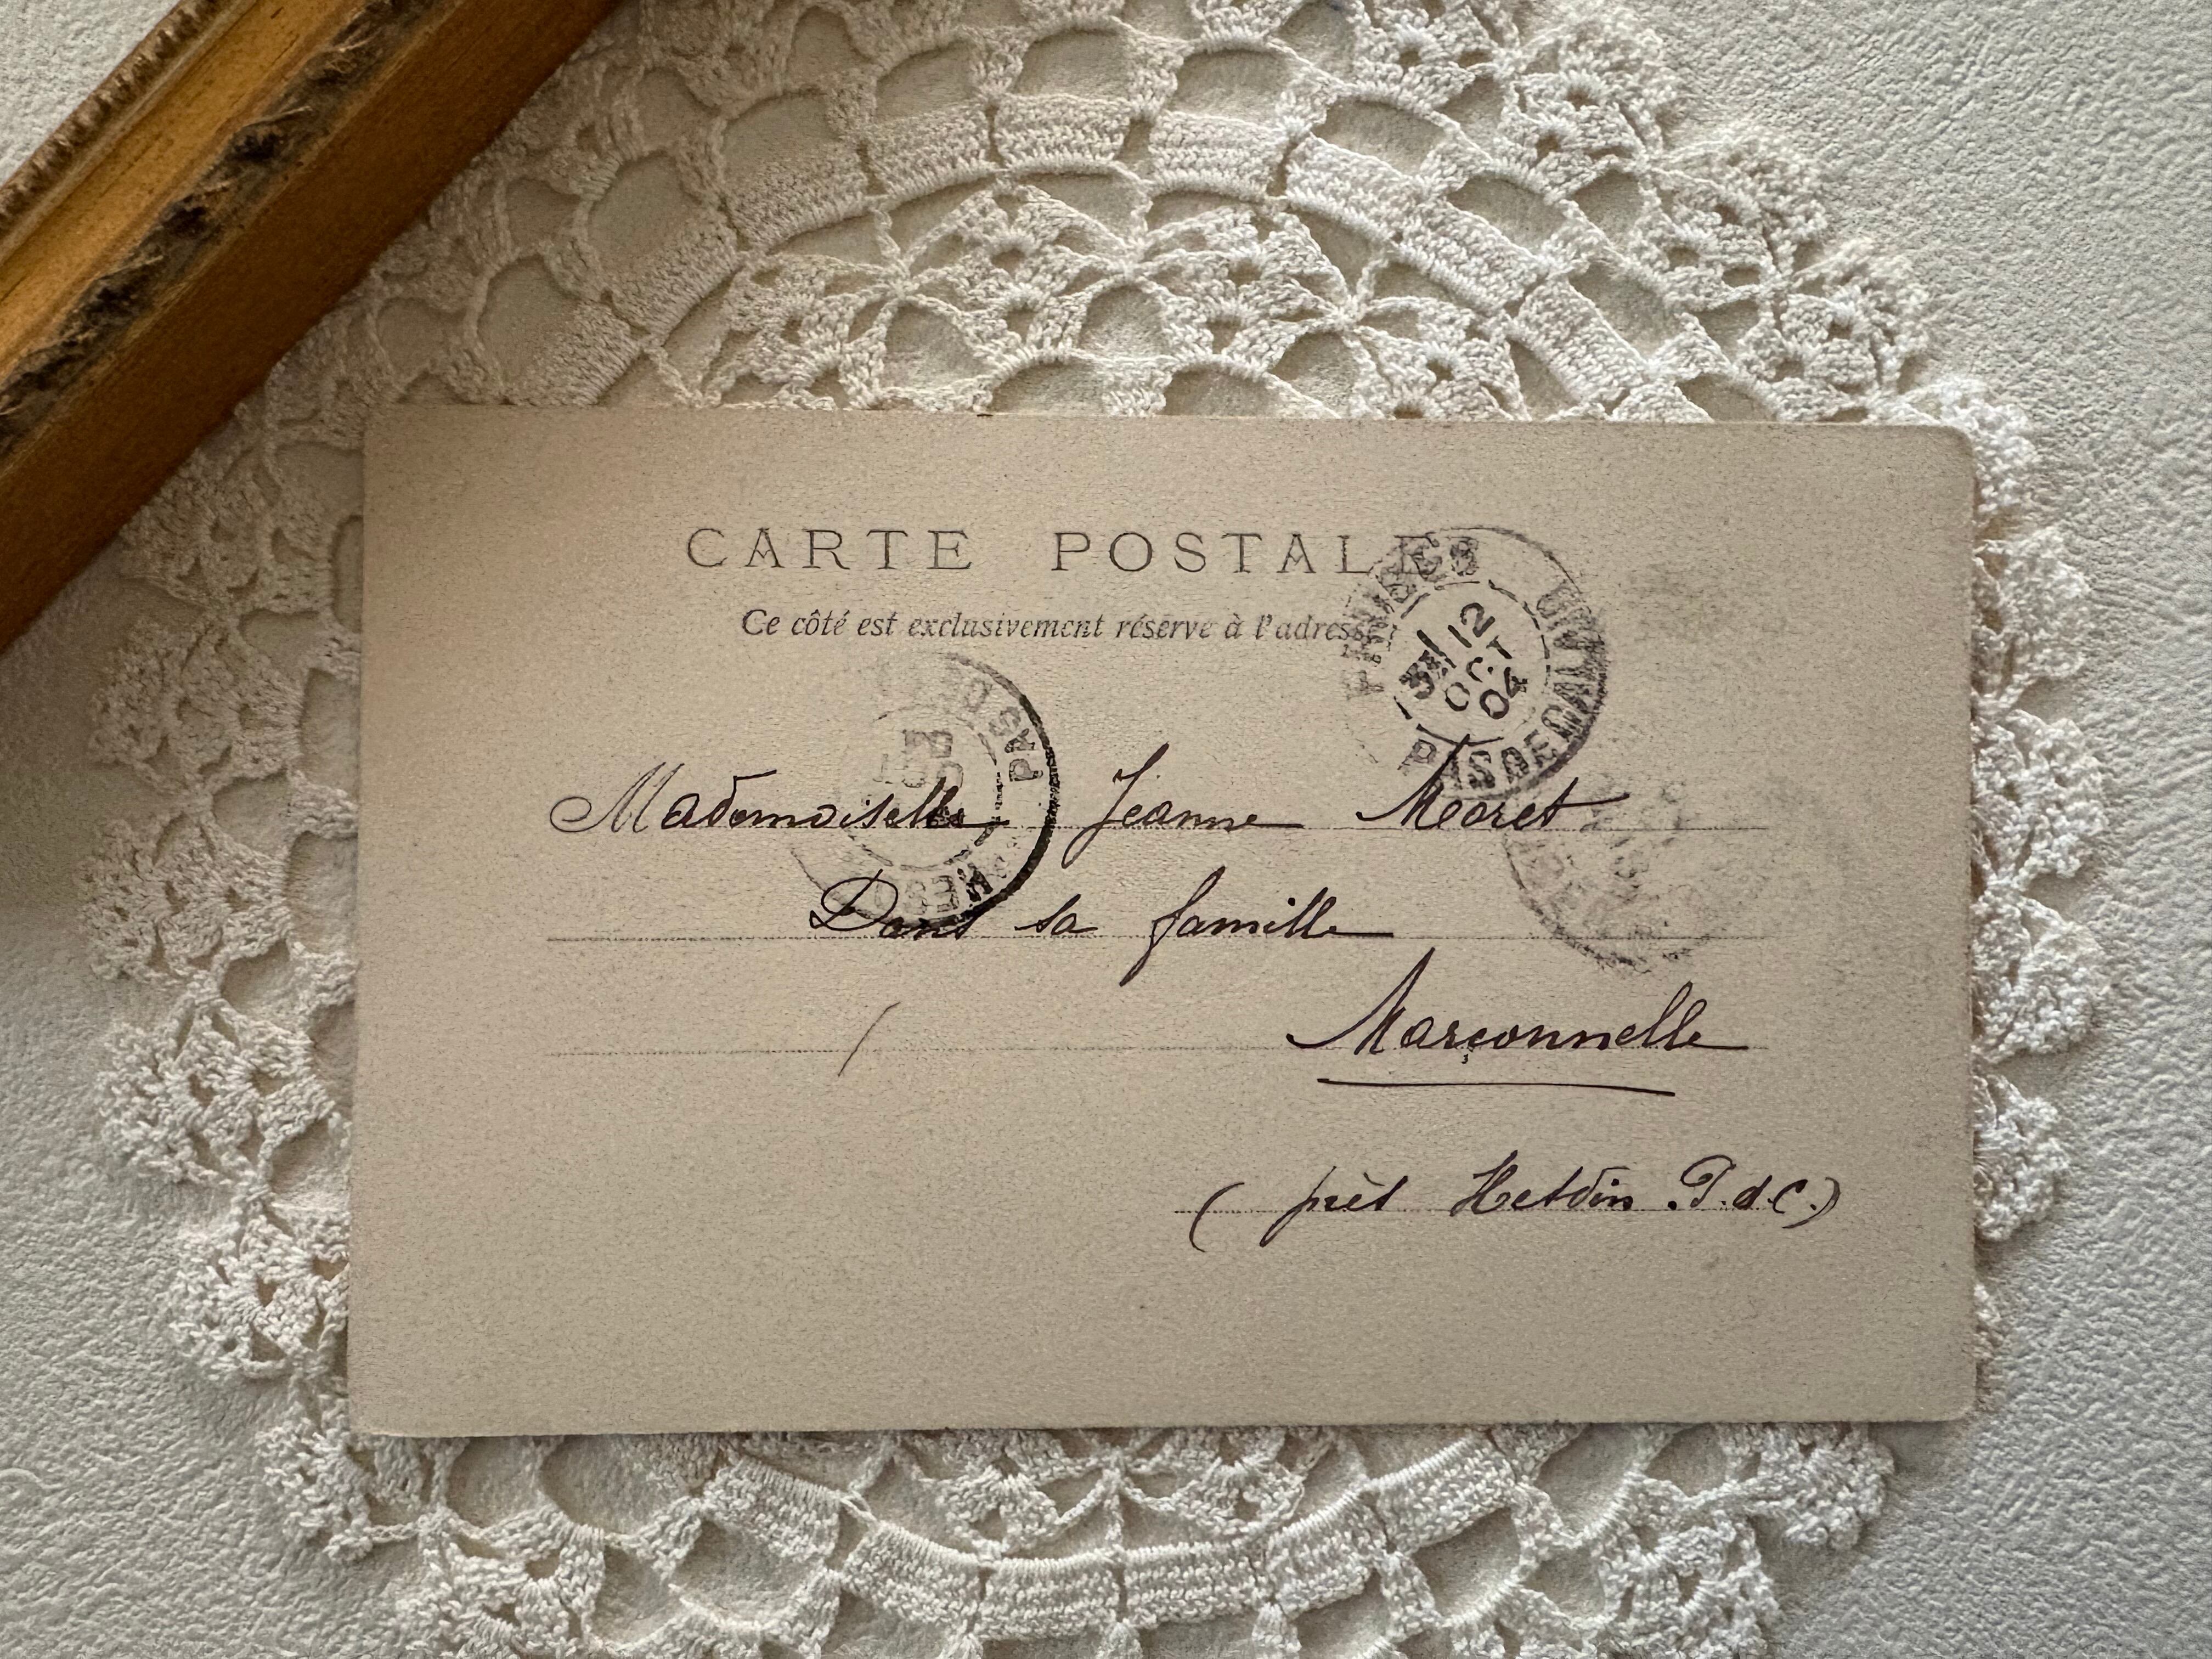 CARTE POSTALE
Ce côté est exclusivement réservé à l'adresse
PAS DE
3E/12
OCT
04
PAS DE CALAIS
Mademoiselle Jeanne
Dans sa famille
Marçonnelle
( près Hesdin P.d.C.)